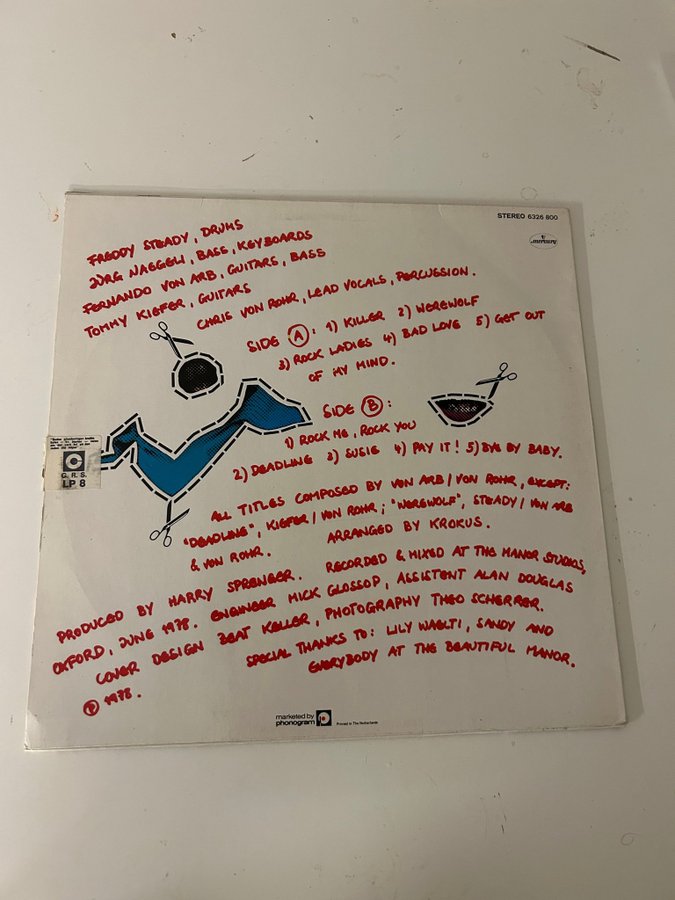 STEREO 6326 800
mercury
FREDDY STEADY, DRUMS
JÜRG NAEGELI, BASS, KEYBOARDS
FERNANDO VON ARB, GUITARS, BASS
TOMMY KIEFER, GUITARS
CHRIS VON ROHR, LEAD VOCALS, PERCUSSION.
SIDE A: 1) KILLER 2) WEREWOLF
3) ROCK LADIES 4) BAD LOVE 5) GET OUT
OF MY MIND.
SIDE B:
1) ROCK ME, ROCK YOU
2) DEADLINE 3) SUSIE 4) PAY IT! 5) BYE BY BABY.
ALL TITLES COMPOSED BY VON ARB/VON ROHR, EXCEPT:
"DEADLING", KIEFER/VON ROHR; "WEREWOLF", STEADY/VON ARB
& VON ROHR. ARRANGED BY KROKUS.
PRODUCED BY HARRY SPRENGER. RECORDED & MIXED AT THE MANOR STUDIOS,
OXFORD, JUNE 1978. ENGINEER MICK GLOSSOP, ASSISTENT ALAN DOUGLAS
COVER DESIGN BEAT KELLER, PHOTOGRAPHY THEO SCHERRER.
SPECIAL THANKS TO: LILY WAELTI, SANDY AND
℗ 1978. EVERYBODY AT THE BEAUTIFUL MANOR.
G.R.S.
LP 8
marketed by
phonogram
Printed in The Netherlands